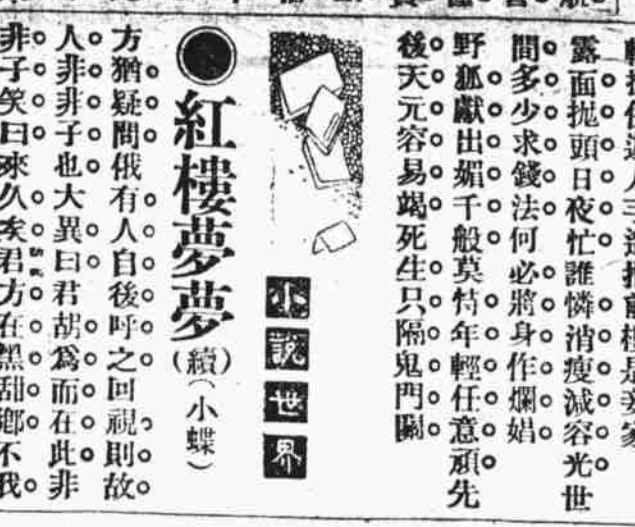 前樓是妾家
露面拋頭日夜忙誰憐消瘦減容光世
間多少求錢法何必將身作爛娼
野狐獻出媚千般莫特年輕任意頑先
後天元容易竭死生只隔鬼門關
小說世界
紅樓夢夢(續)(小蝶)
方猶疑間俄有人自後呼之回視則故
人非非子也大異曰君胡爲而在此非
非子笑曰來久矣君方在黑甜鄉不我